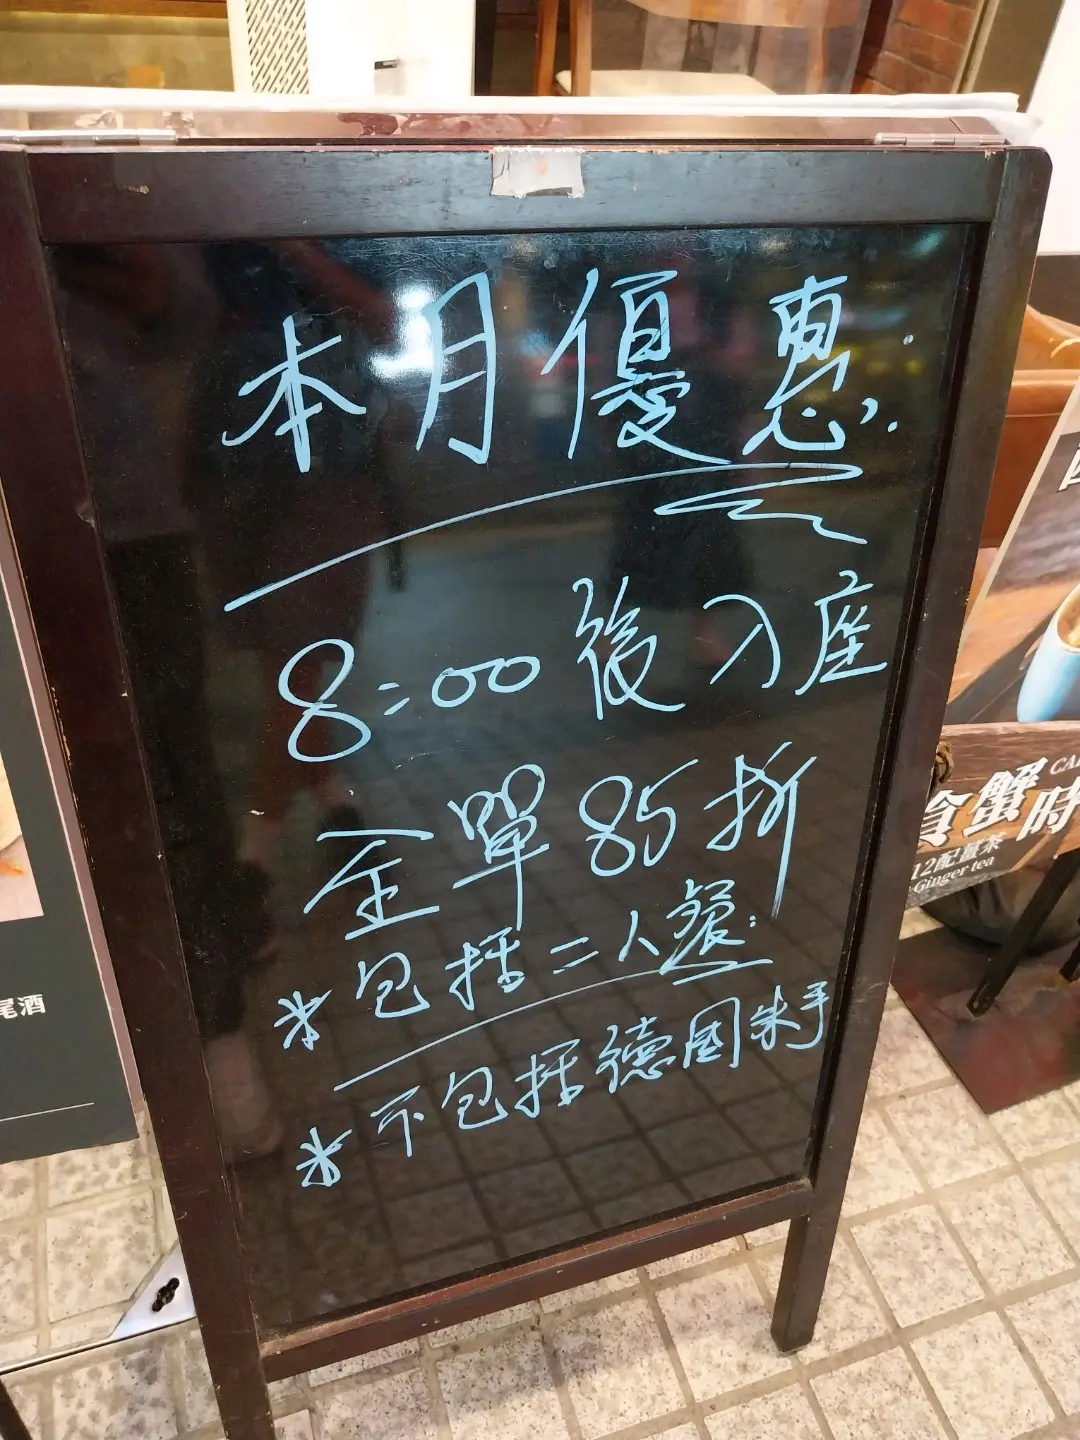 本月優惠:
8:00 後入座
全單 85 折
* 包括二人餐:
* 不包括德國朱手
尾酒
食蟹時
CA
12配薑茶
Ginger tea